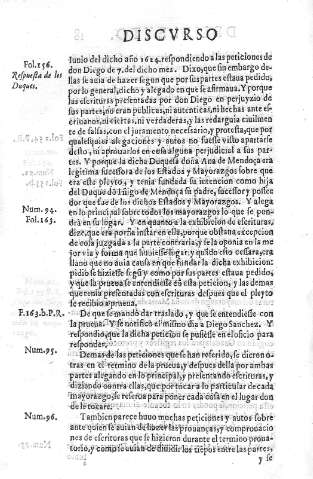 DISCVRSO
Fol. 156.
Respuesta de los
Duques.
Iunio del dicho año 1624. respondiendo a las peticiones de
don Diego de 7. del dicho mez. Dixo, que sin embargo de-
llas se auia de hazer segun que por sus partes estaua pedido,
por lo general, dicho y alegado en que se afirmaua. Y porque
las escrituras presentadas por don Diego en perjuyzio de
sus partes, no eran publicas, ni autenticas, ni hechas ante es-
criuanos, ni ciertas, ni verdaderas, y las redarguia ciuilmen-
te de falsas, con el juramento necesario, y protesta, que por
qualesquier alegaciones y autos no fuesse visto apartarse
desto, ni aprouarlos en cosa alguna perjudicial a sus par-
tes. Y porque la dicha Duquesa doña Ana de Mendoça era
legitima sucessora de los Estados y Mayorazgos sobre que
era este pleyto, y tenia fundada su intencion como hija
del Duque dō Iñigo de Mendoça su padre, sucessor y posse-
dor que fue de los dichos Estados y Mayorazgos. Y alega
Num. 94.
en lo principal sobre todos los mayorazgos lo que se pon-
Fol. 163.
drà en su lugar. Y en quanto a la exhibicion de escrituras,
dize, que era por su instar en ella, porque obstaua excepcion
de cosa juzgada a la parte contraria, y se la oponia en la me
jor via y forma que huuiesse lugar: y quādo esto cessara, era
llano que no auia causa en que fundar la dicha exhibicion:
pidiò se hiziesse segū y como por sus partes estaua pedido,
y que la prueua se entendiesse cō esta peticion, y las demas
que tenia presentadas con escrituras despues que el pleyto
se recibiò a prueua.
F. 163. b. P. R.
De que se mandò dar traslado, y que se entendiesse con
la prueua. Y se notificò el mismo dia a Diego Sanchez. Y
respondiò, que la dicha peticion se pusiesse en el oficio para
responder.
Num. 95.
Demas de las peticiones que se han referido, se dieron o-
tras en el termino de la prueua, y despues della por ambas
partes alegando en lo principal, y presentando escrituras, y
diziendo contra ellas, que por tocar a lo particular de cada
mayorazgo, se reserua para poner cada cosa en el lugar don
de le tocare.
Num. 96.
Tambien parece huuo muchas peticiones y autos sobre
ante quien se auian de hazer las prouanças, y comprouacio-
nes de escrituras que se hizieron durante el termino proua-
torio, y como se auian de diuidir los tiepos entre las partes,
y se